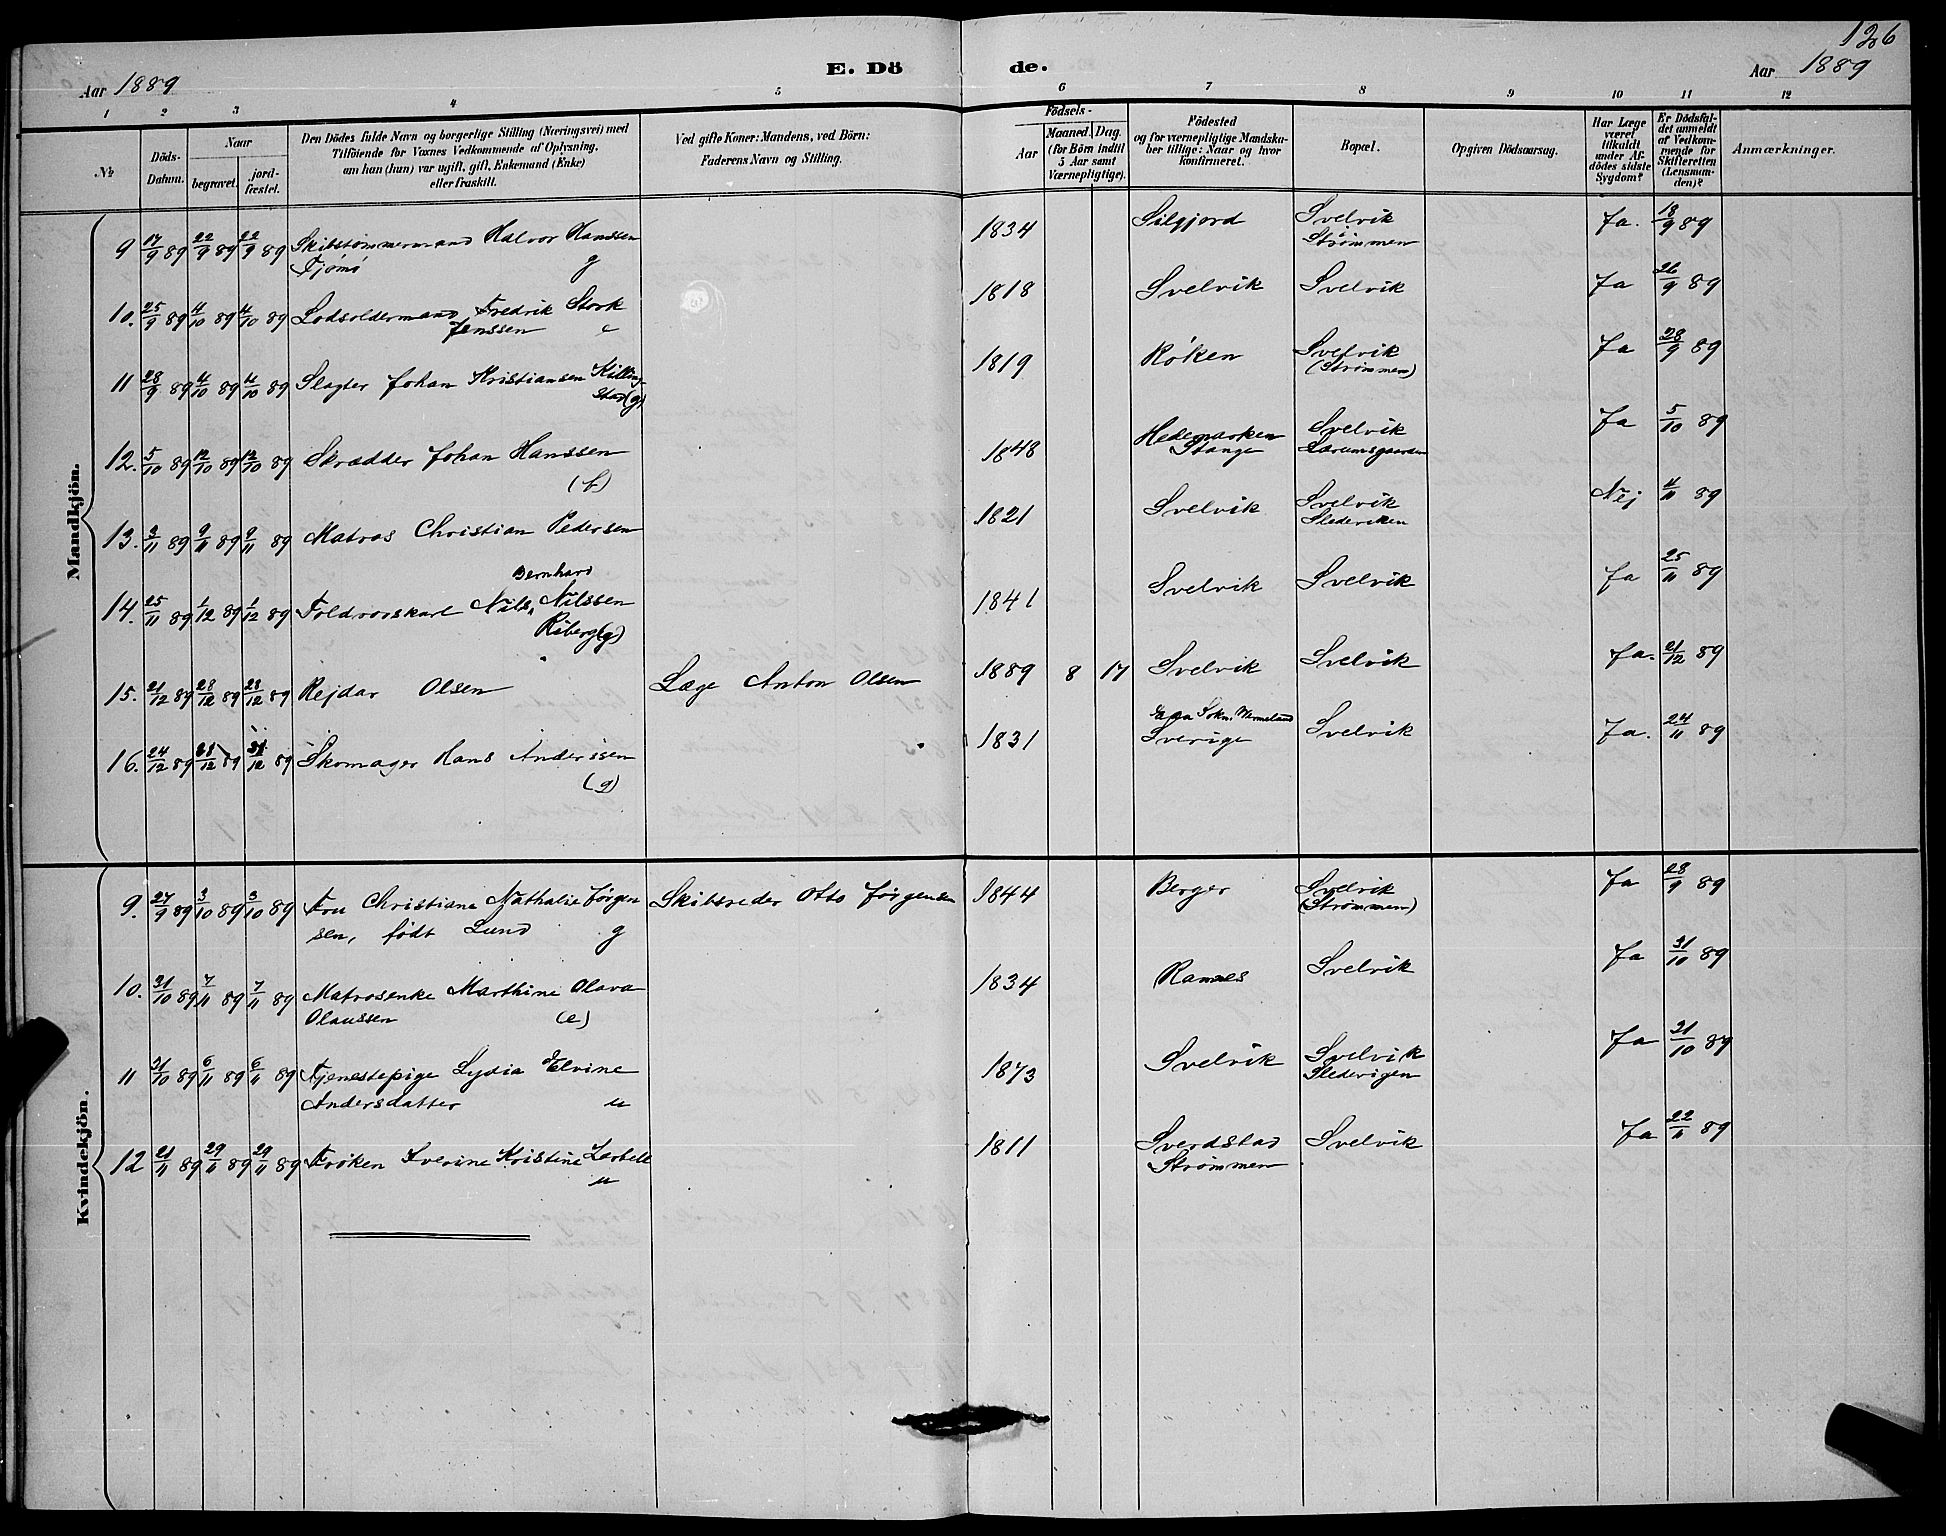 126
Aar 1889
E. Dö de.
Aar 1889
1 2 3 4 5 6 7 8 9 10 11 12
№
Döds-Datum.
Naar
begravet.
jord-fæstet.
Den Dödes fulde Navn og borgerlige Stilling (Næringsvei) med
Tilföiende for Voxnes Vedkommende af Oplysning,
om han (hun) var ugift, gift, Enkemand (Enke)
eller fraskilt.
Ved gifte Koner: Mandens, ved Börn:
Faderens Navn og Stilling.
Födsels-
Aar
Maaned. Dag.
(for Börn indtil
5 Aar samt
Værnepligtige).
Födested
og for værnepligtige Mandska-
ber tillige: Naar og hvor
konfirmeret.
Bopæl.
Opgiven Dödsaarsag.
Har Læge
været
tilkaldt
under Af-
dödes sidste
Sygdom?
Er Dödsfal-
det anmeldt
af Vedkom-
mende for
Skifteretten
(Lensman-
den)?
Anmærkninger.
Mandkjön.
9 17/9 89 22/9 89 22/9 89 Skibstømmermand Halvor Hanssen 1834 Silgjord Svelvik Ja. 18/9 89
Tjømø g Strømmen
10. 25/9 89 4/10 89 4/10 89 Lodsoldermand Fredrik Stork 1818 Svelvik Svelvik Ja 26/9 89
Jenssen e
11 28/9 89 4/10 89 4/10 89 Slagter Johan Kristiansen Killing- 1819 Røken Svelvik Ja 28/9 89
stad (g) (Strømmen)
12. 5/10 89 12/10 89 12/10 89 Skrædder Johan Hanssen 1848 Hedemarken Svelvik Ja 5/10 89
Stange
13. 3/11 89 9/11 89 9/11 89 Matros Christian Pedersen 1821 Svelvik Svelvik Nej 4/11 89
Slederiken
Bernhard
14. 25/11 89 1/12 89 1/12 89 Toldroerskarl Nils Nilssen 1841 Svelvik Svelvik Ja 25/11 89
Riberg (g)
15. 21/12 89 28/12 89 28/12 89 Rejdar Olsen Læge Anton Olsen 1889 8 17 Svelvik Svelvik Ja. 21/12 89
16. 24/12 89 31/12 89 31/12 89 Skomager Hans Anderssen 1831 Sokn. Wermeland Svelvik Ja. 24/11 89
(g) Sverige
Kvindekjön.
9. 27/9 89 3/10 89 3/10 89 Fru Christiane Nathalie Jørgen Skibsreder Otto Jørgensen 1844 Berger Svelvik Ja 28/9 89
sen, født Lund g (Strømmen)
10. 31/10 89 7/11 89 7/11 89 Matrosenke Marthine Olava 1834 Ramnes Svelvik Ja 31/10 89
Olaussen (e)
11 31/10 89 6/11 89 6/11 89 Tjenestepige Lydia Elvine 1873 Svelvik Svelvik Ja 31/10 89
Andersdatter u Slederigen
12 21/11 89 29/11 89 29/11 89 Frøken Iverine Kristine 1811 Sverdstad Svelvik Ja 22/11 89
u Strømmen